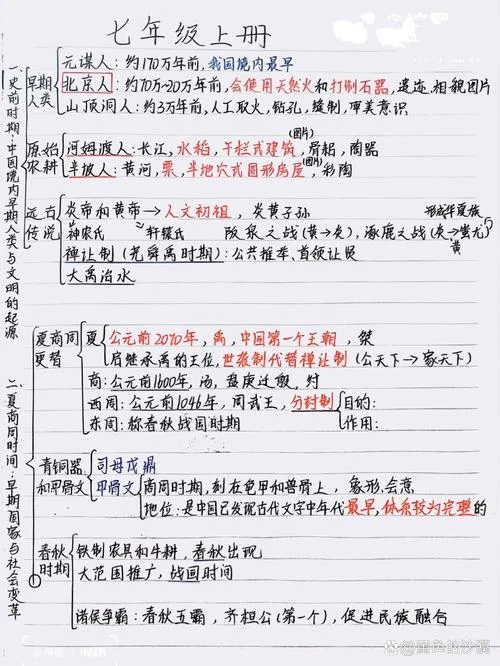 七年级上册
一 史前时期：中国境内早期人类与文明的起源
早期人类
元谋人：约170万年前，我国境内最早
北京人：约70万~20万年前，会使用天然火和打制石器，遗迹、相貌图片
山顶洞人：约3万年前，人工取火，钻孔，缝制，审美意识
原始农耕
河姆渡人：长江，水稻，干栏式建筑，骨耜，陶器
(图片)
半坡人：黄河，粟，半地穴式圆形房屋，彩陶
(图片)
远古传说
炎帝和黄帝→人文初祖，炎黄子孙
形成华夏族
神农氏 轩辕氏 阪泉之战(黄→炎)，涿鹿之战(炎→蚩尤)
黄
禅让制(尧舜禹时期)：公共推举、首领让贤
大禹治水
二、夏商周时间：早期国家与社会变革
夏商周更替
夏
公元前2070年，禹，中国第一个王朝，桀
启继承禹的王位，世袭制代替禅让制(公天下→家天下)
商：公元前1600年，汤，盘庚迁殷，纣
西周：公元前1046年，周武王，分封制
目的：
作用：
东周：称春秋战国时期
青铜器和甲骨文
司母戊鼎
甲骨文
商周时期，刻在龟甲和兽骨上，象形、会意
地位：是中国已发现古代文字中年代最早，体系较为完整的
春秋时期
铁制农具和牛耕，春秋出现
大范围推广，战国时间
诸侯争霸：春秋五霸，齐桓公(第一个)，促进民族融合
@蓝色的沙漠